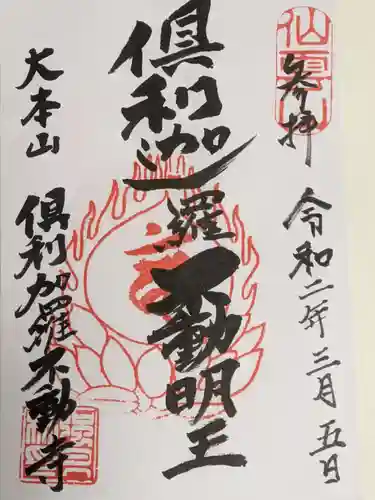 参拝
令和二年三月五日
倶利迦羅不動明王
大本山
倶利加羅不動寺